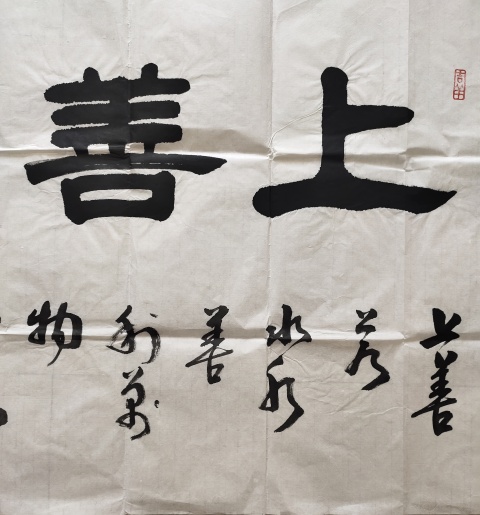 上善
上善
若
水水
善
利萬
物